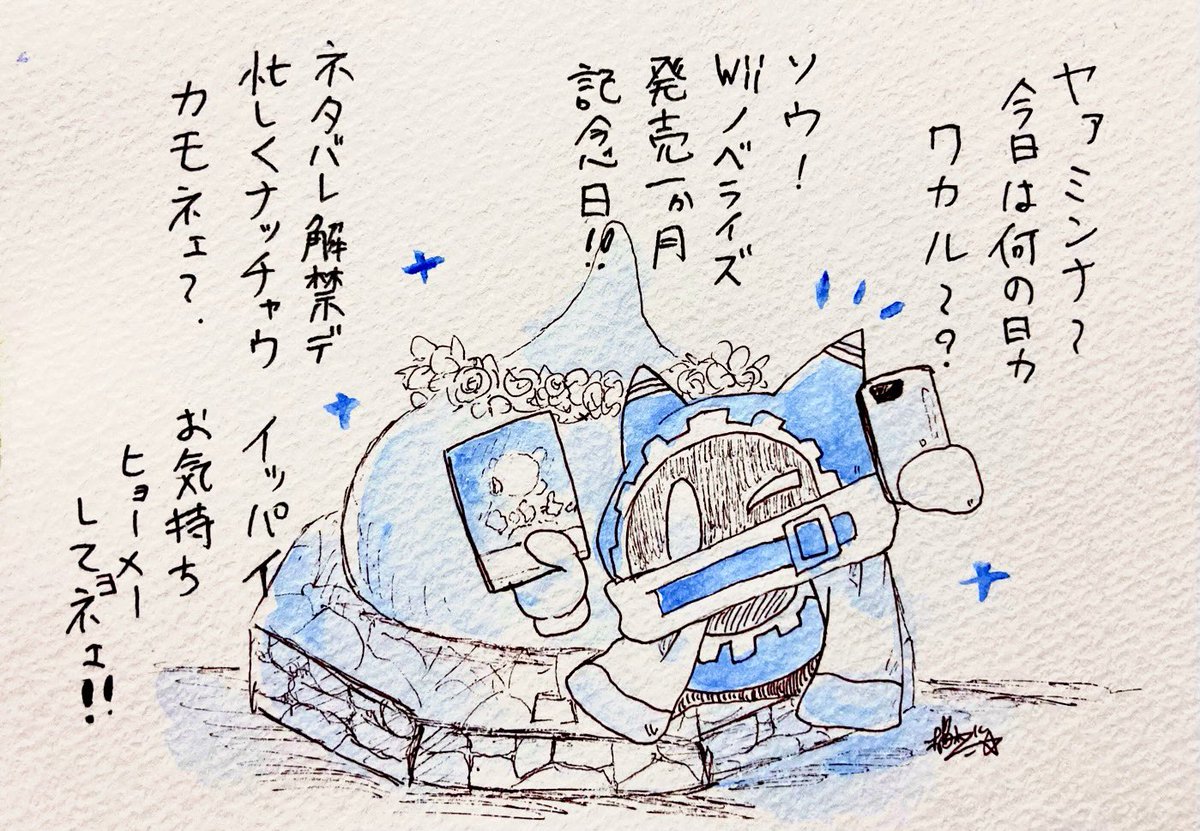 ヤァミンナ〜
今日は何の日カ
ワカル〜？
ソウ！
Wiiノベライズ
発売一か月
記念日！！
ネタバレ解禁デ
忙しくナッチャウ
カモネェ？
イッパイ
お気持ち
ヒョーメー
してョネェ！！